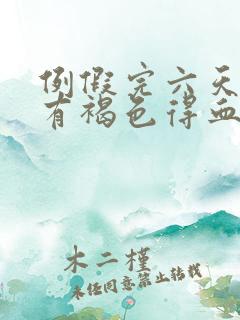 例假完六天
有褐色得血
木二槿
未经同意禁止转载